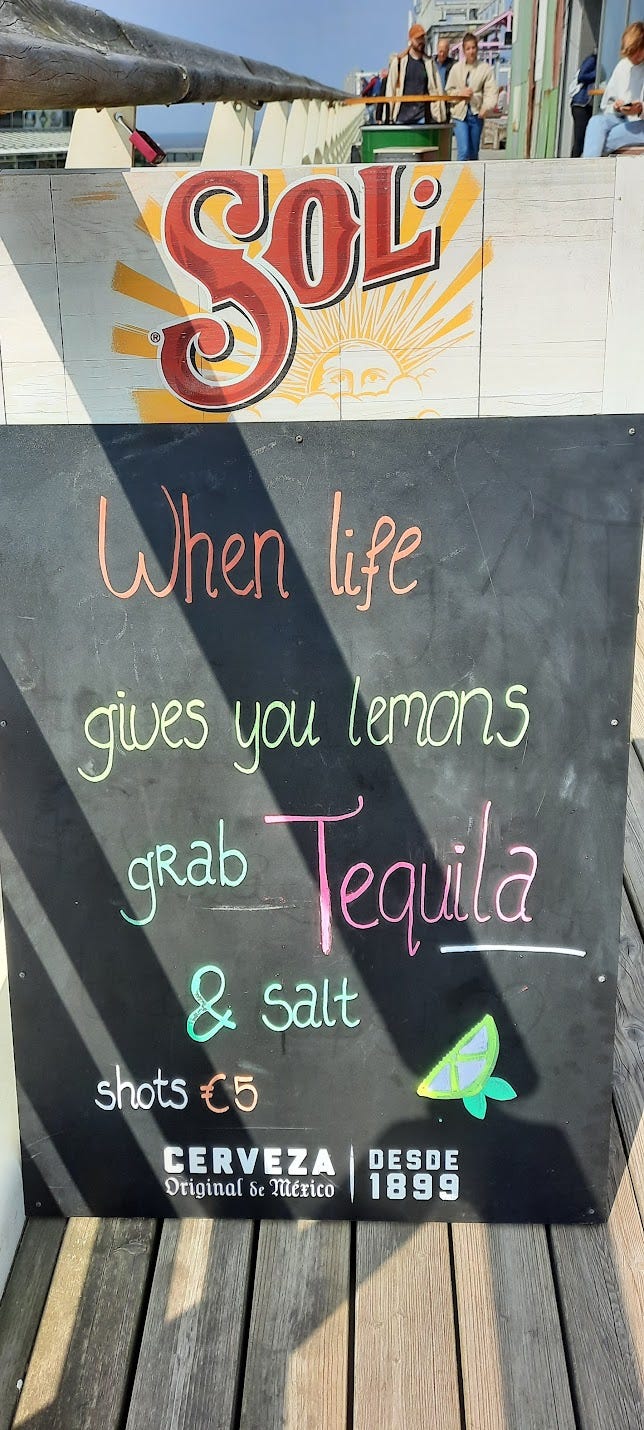 SOL
®
When life
gives you lemons
grab Tequila
& salt
shots €5
CERVEZA | DESDE
Original de México | 1899